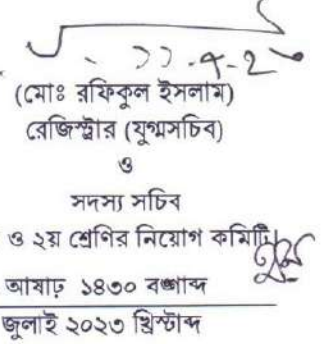 (মোঃ রফিকুল ইসলাম)
রেজিস্ট্রার (যুগ্মসচিব)
ও
সদস্য সচিব
ও ২য় শ্রেণির নিয়োগ কমিটি
আষাঢ় ১৪৩০ বঙ্গাব্দ
জুলাই ২০২৩ খ্রিস্টাব্দ